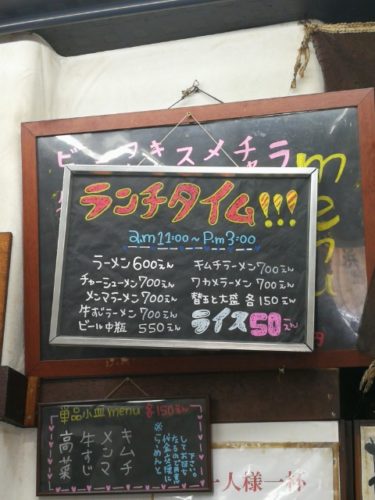 ランチタイム!!!
a.m 11:00～P.m 3:00
ラーメン 600えん
チャーシューメン 700えん
メンマラーメン 700えん
牛すじラーメン 700えん
ビール中瓶 550えん
キムチラーメン 700えん
ワカメラーメン 700えん
替玉と大盛 各150えん
ライス50えん
menu
単品小皿 menu 各150えん
キムチ
メンマ
牛すじ
高菜
一人様一杯